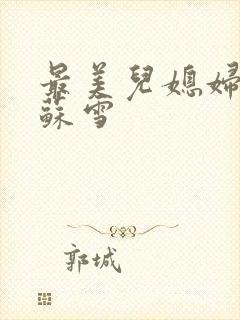 最美兒媳婦
蘇雪
郭城